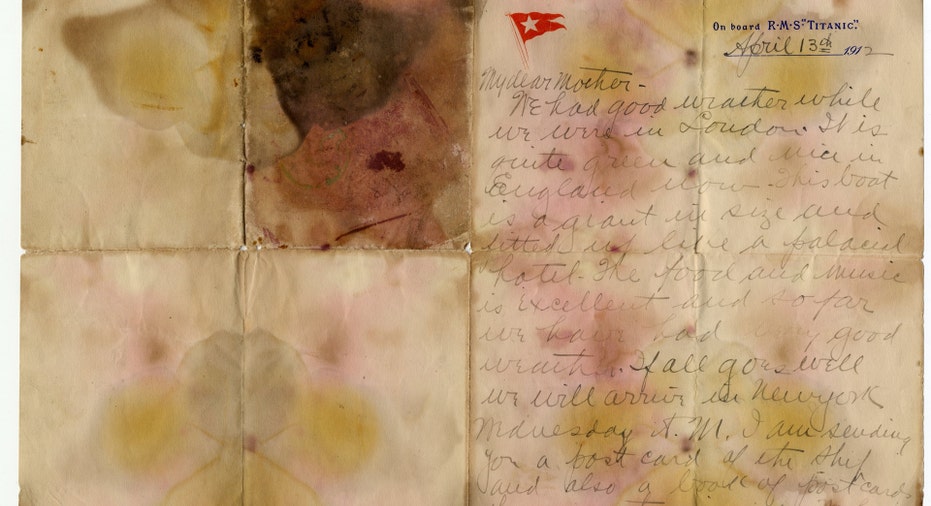 On board R·M·S "TITANIC."
April 13th 1912
My dear Mother -
We had good weather while
we were in London. It is
quite green and nice in
England now. This boat
is a giant in size and
fitted up like a palacial
hotel. The food and music
is excellent and so far
we have had very good
weather. If all goes well
we will arrive in New york
Wednesday A. M. I am sending
you a post card of the ship
and also a book of post cards